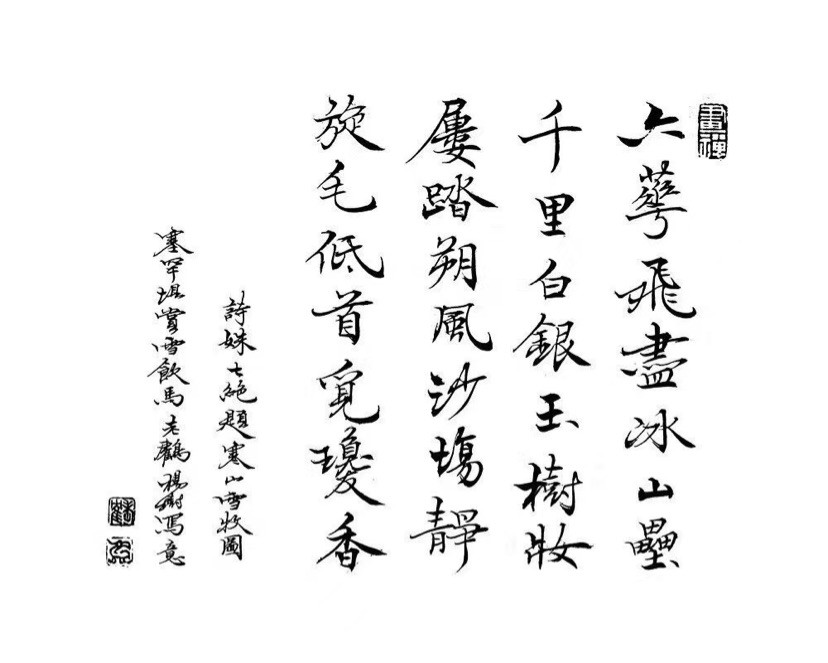 六蕚飛盡冰山壘
千里白銀玉樹妝
屢踏朔風沙塲靜
旋毛低首覓瓊香
詩姝七絕題寒山雪牧圖
塞罕垻賞雪飲馬老鶴楊樹寫意
畫禪